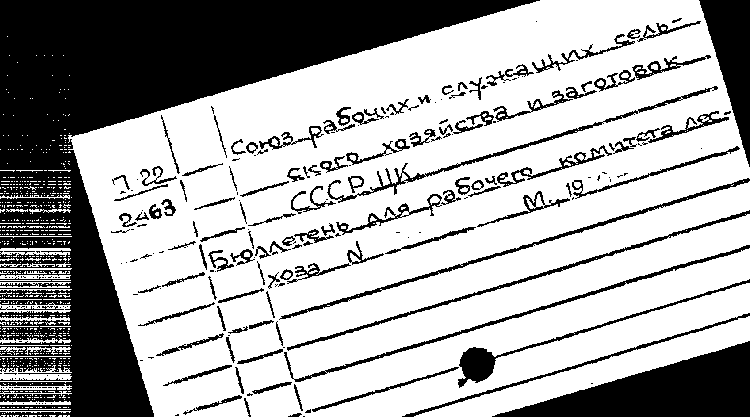 Союз рабочих и служащих сель-
ского хозяйства и заготовок
П 22
2463
СССР. ЦК.
Бюллетень для рабочего комитета лес-
хоза N М., 19